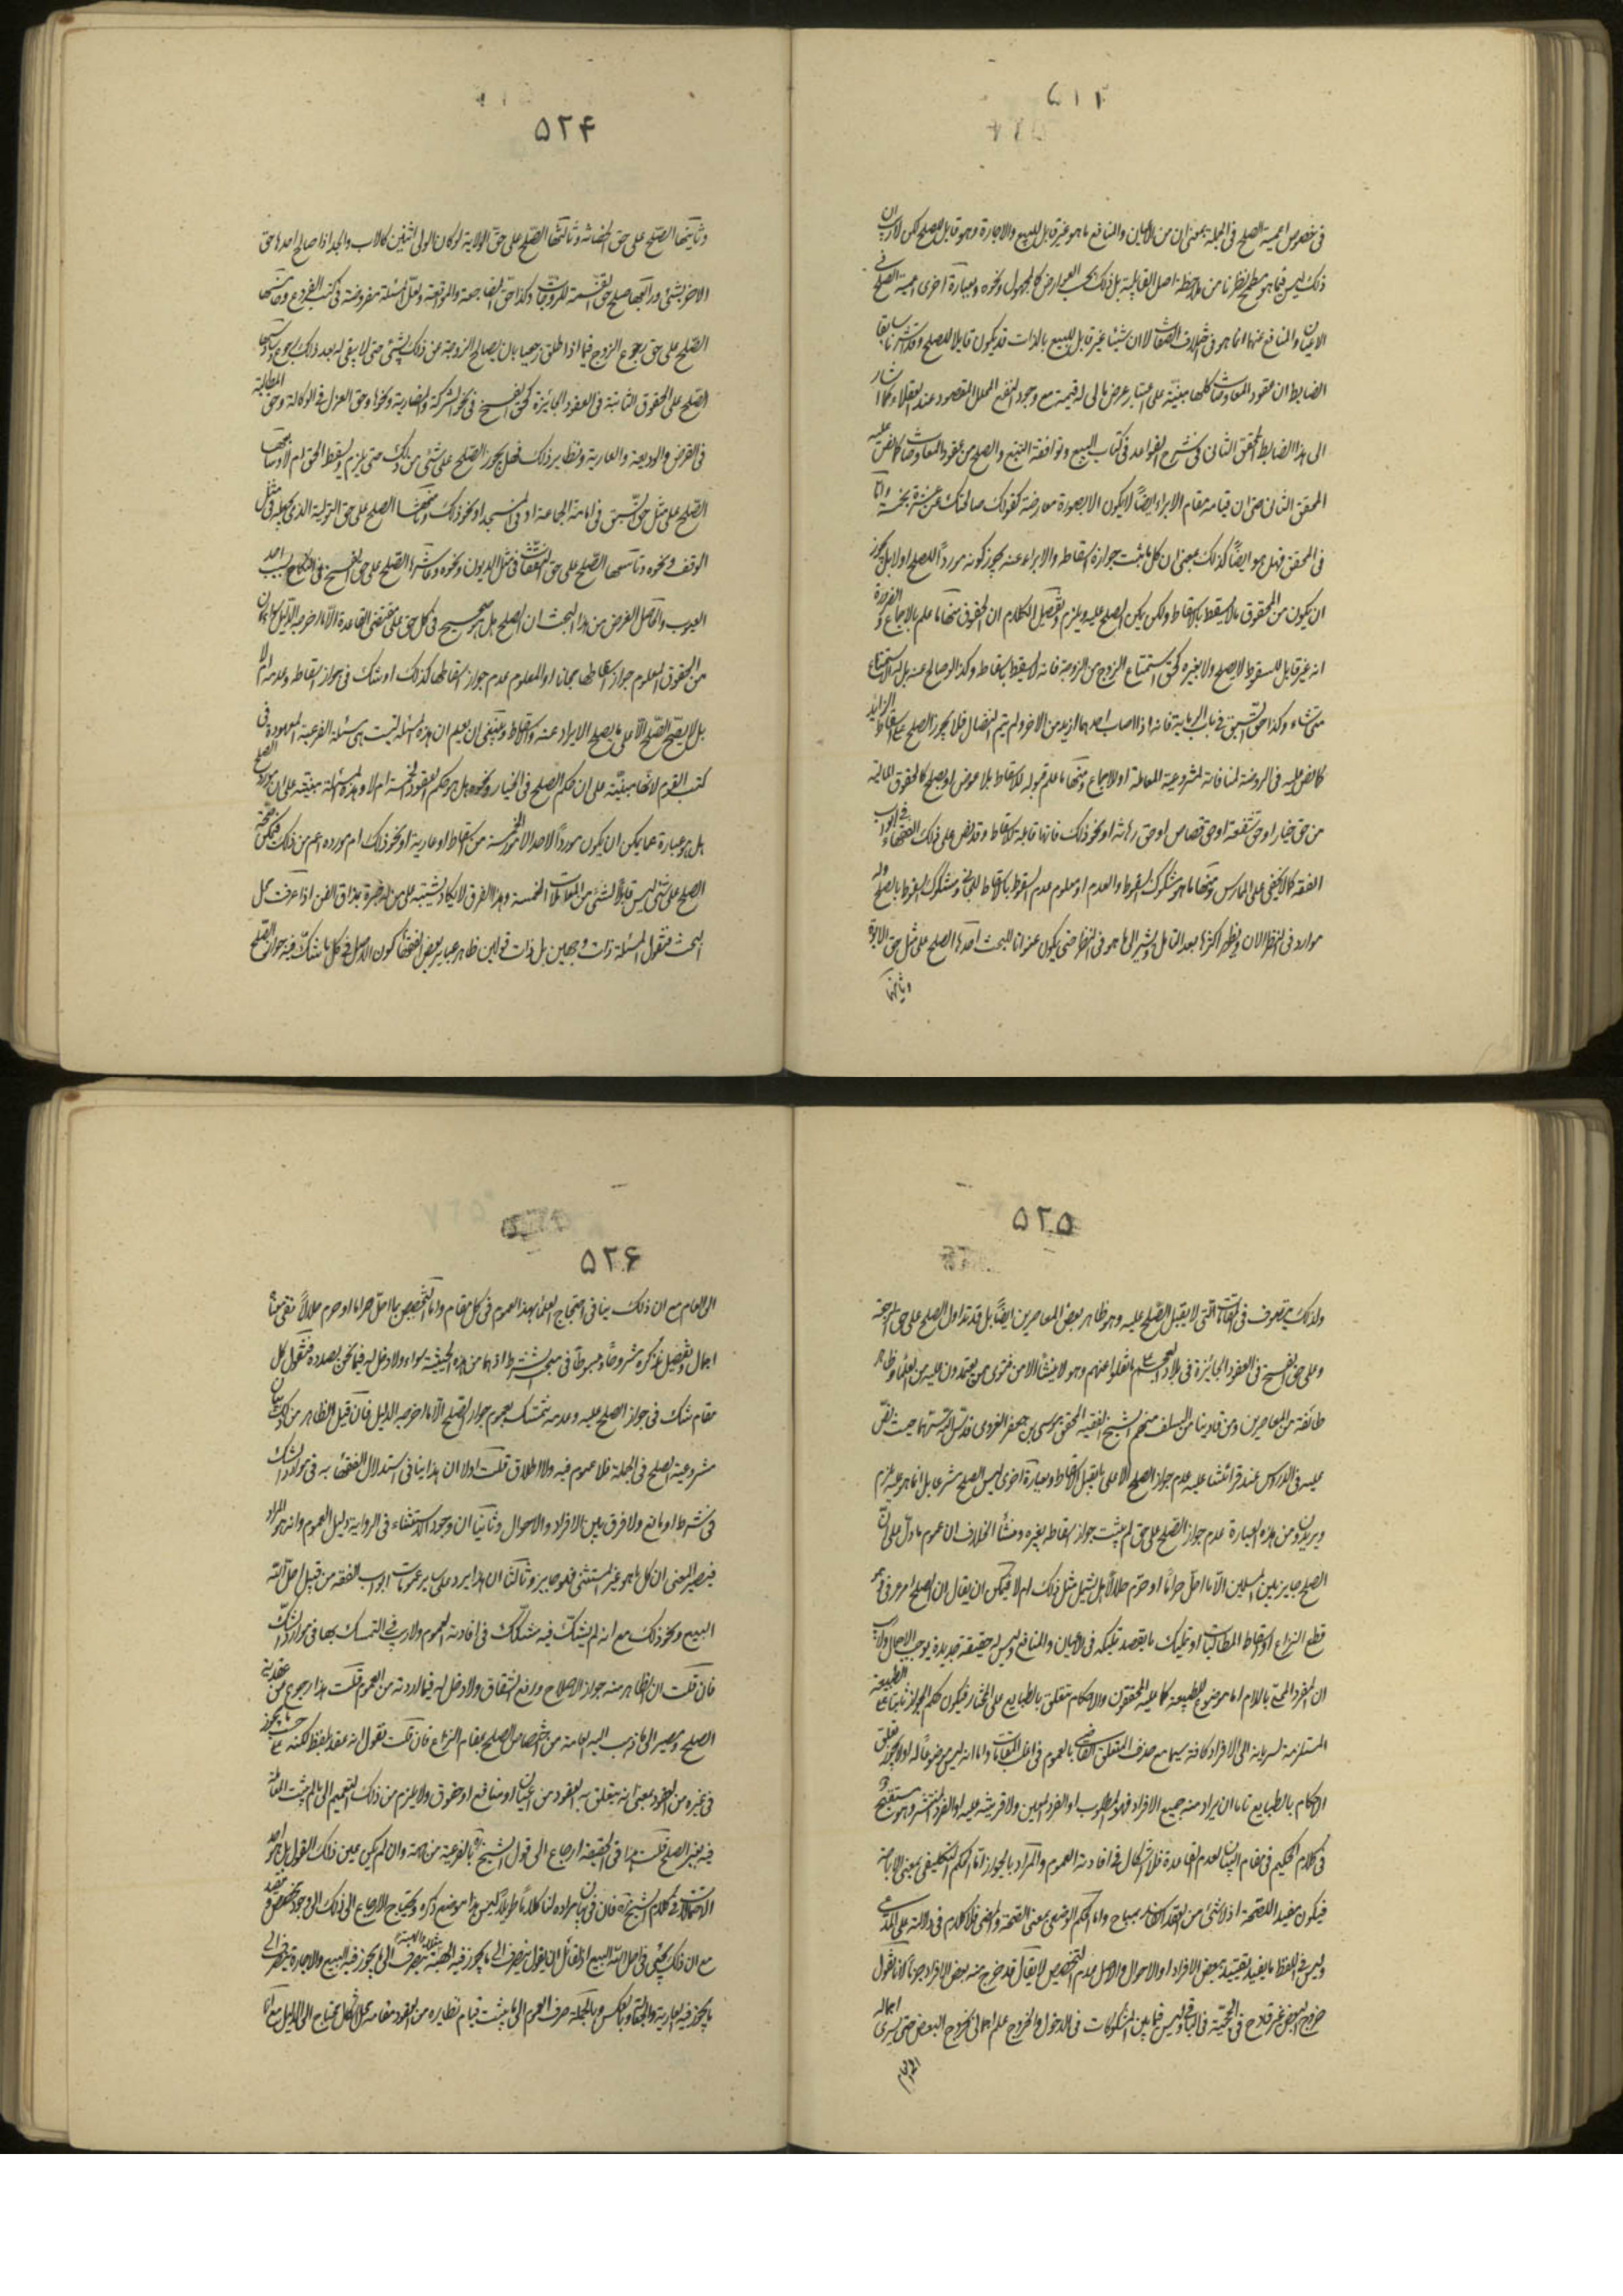 ۵۱۲
في خصوص اعمية الصلح في الجملة بمعنى ان من الاعيان والمنافع ما هو غير قابل للبيع والاجارة وهو قابل للصلح لكن لا ريب ان
ذلك ليس فيما هو مطمح نظرنا من ملاحظة اصل القابلية بل ذلك بحسب العوارض كالمجهول ونحوه وبعبارة اخرى اعمية الصلح في
الاعيان والمنافع عنهما انما هو في اختلاف الصفات لا ان شيئا غير قابل للبيع بالذات قد يكون قابلا للصلح وقد اشرنا سابقا
الضابط ان عقود المعاوضات كلها مبنية على اعتبار عوض مالي له قيمة مع وجود النفع المحلل المقصود عند العقلاء كما اشار
الى هذا الضابط المحقق الثاني في شرح القواعد في كتاب البيع وتوافقه التتبع والصلح من عقود المعاوضات كما نص عليه
المحقق الثاني حتى ان قيامه مقام الابراء ايضا لا يكون الا بصورة معارضة كقولك صالحتك عن عشرة بخمسة واما
في المحقق فهل هو ايضا كذلك بمعنى ان كل ما ثبت جواز اسقاطه والابراء عنه يجوز كونه موردا للصلح او لا بل يجوز
ان يكون من الحقوق ما لا يسقط بالاسقاط ولكن يمكن الصلح عليه ويلزم وتفصيل الكلام ان الحقوق منها ما علم بالاجماع والضرورة
انه غير قابل للسقوط لا بصلح ولا بغيره كحق استمتاع الزوج من الزوجة فانه لا يسقط باسقاط وكذا لو صالح عنه بل له الاستمتاع
متى شاء وكذا حق السبق في باب الرماية فانه اذا اصاب احدهما ازيد من الاخر ولم يتم النضال فلا يجوز الصلح على اسقاط الزايد
كما نص عليه في الروضة لمنافاته لمشروعية المعاملة او للاجماع ومنها ما علم قبوله للاسقاط بلا عوض او بصلح كالحقوق المالية
من حق خيار او حق شفعة او حق قصاص او حق رهانة او نحو ذلك فانها قابلة للاسقاط وقد نص على ذلك الفقهاء في ابواب
الفقه كما لا يخفى على الممارس ومنها ما هو مشكوك السقوط والعدم او معلوم عدم السقوط بالاسقاط المجاني ومشكوك السقوط بالصلح وله
موارد في النظر الان ويظهر اكثرها بعد التأمل ونشير الى ما هو في النظر حتى يكون عنوانا للبحث احدها الصلح على مثل حق الابوة
وثانيها
۵۲۴
وثانيها الصلح على حق الحضانة وثالثها الصلح على حق الولاية لو كان الولي اثنين كالاب والجد اذا صالح احدهما حق
الاخر بشئ ورابعها صلح حق القسمة للزوجات وكذا حق المضاجعة والمواقعة ولعل المسئلة مفروضة في كتب الفروع وخامسها
الصلح على حق رجوع الزوج فيما اذا طلق رجعيا بان يصالح الزوجة عن ذلك بشئ حتى لا يبقى له بعد ذلك رجوع وسادسها
الصلح على الحقوق الثابتة في العقود الجائزة كحق الفسخ في نحو الشركة والمضاربة ونحوها وحق العزل في الوكالة وحق المطالبة
في القرض والوديعة والعارية ونظاير ذلك فهل يجوز الصلح على شئ من ذلك حتى يلزم ويسقط الحق ام لا وسابعها
الصلح على مثل حق السبق في امامة الجماعة او في المسجد او نحو ذلك وثامنها الصلح على حق التولية الذي جعله في مثل
الوقف ونحوه وتاسعها الصلح على حق النفقات في مثل الديون ونحوه وعاشرها الصلح على حق الفسخ في النكاح بسبب احد
العيوب والحاصل الغرض من هذا البحث ان الصلح هل هو صحيح في كل حق على مقتضى القاعدة الا ما اخرجه الدليل سواء كان
من الحقوق المعلوم جواز اسقاطها مجانا او المعلوم عدم جواز اسقاطها كذلك او شك في جواز اسقاطه وعدمه ام لا
بل لا يصح الصلح الا على ما يصح الابراء عنه واسقاطه وينبغي ان يعلم ان هذه المسئلة ليست هي مسئلة الفرعية المعهودة في
كتب القوم لانها مبنية على ان حكم الصلح في الخيار ونحوه هل هو حكم العقود الخمسة ام لا وهذه المسئلة مبنية على ان مورد الصلح
هل هو عبارة عما يمكن ان يكون موردا لاحد الامور الخمسة من اسقاط او عارية او نحو ذلك ام مورده اعم من ذلك فيمكن صحة
الصلح على شئ ليس قابلا لشئ من المعاملات الخمسة وهذا الفرق لا يكاد يشتبه على من له خبرة بمذاق الفن اذا عرفت محل
البحث فنقول المسئلة ذات وجهين بل ذات قولين ظاهر عباير بعض الفقهاء كون الاصل في كل ما شك فيه جواز الصلح
۵۲۵
ولذلك يتصرف في المقامات التي لا يقبل الصلح عليه وهو ظاهر بعض المعاصرين ايضا بل قد تداول الصلح على حق الرجعة
وعلى حق الفسخ في العقود الجائزة في بلاد العجم على ما نقلوا عنهم وهو لا ينشأ الا من فتوى من يعتمدون عليه من العلماء وظاهر
طائفة من المعاصرين ومن قاربنا من السلف منهم الشيخ الفقيه المحقق موسى بن جعفر الغروي قدس الله سرهما حيث نص
عليه في الدروس عند قرائتنا عليه عدم جواز الصلح الا على ما يقبل الاسقاط وبعبارة اخرى ليس الصلح مشرعا بل انما هو غير ملزم
ويريدون من هذه العبارة عدم جواز الصلح على حق لم يثبت جواز اسقاطه بغيره ومنشأ الخلاف ان عموم ما دل على ان
الصلح جايز بين المسلمين الا ما احل حراما او حرم حلالا هل يشمل مثل ذلك ام لا فيمكن ان يقال ان الصلح امر عرفي هو
قطع النزاع او اسقاط المطالبات او تمليك ما يقصد تمليكه في الاعيان والمنافع وليس له حقيقة جديدة يوجب الاجمال ولا ريب
ان المفرد المحلى باللام اما موضوع للطبيعة كما عليه المحققون والاحكام تتعلق بالطبايع على المختار فيكون حكم الجواز ثابتا على الطبيعة
المستلزمة لسراية الى الافراد كافة سيما مع حذف المتعلق القاضي بالعموم في اغلب المقامات واما انه ليس موضوعا له او لا يجوز تعلق
الاحكام بالطبايع فاما ان يراد منه جميع الافراد فهو المطلوب او الفرد المعين ولا قرينة عليه او الفرد المنتشر وهو مستقبح
في كلام الحكيم في مقام البيان لعدم الفائدة فلا اشكال في افادته العموم والمراد بالجواز اما الحكم التكليفي بمعنى الاباحة
فيكون مفيدا للصحة اذ لا شئ من العقد الفاسد بمباح واما الحكم الوضعي بمعنى الصحة والمضي فلا كلام في دلالته على المدعى
وليس في اللفظ ما يفيد تقييده ببعض الافراد او الاحوال والاصل عدم التخصيص لا يقال قد خرج منه بعض الافراد جزما لانا نقول
خروج البعض غير قادح في الحجية في الباقي وليس فيما بين المشكوكات في الدخول والخروج علم اجمالي بخروج البعض حتى يسري اجماله
الى العام
۵۲۶
الى العام مع ان ذلك ينافي احتجاج العلماء بهذا العموم في كل مقام واما التخصيص بما احل حراما او حرم حلالا ففي معناه
اجمال وتفصيل نذكره مشروحا ومبسوطا في مبحث الشرط اذ هما من هذه الحيثية سواء ولا دخل له فيما نحن بصدده فنقول كل
مقام شك في جواز الصلح عليه وعدمه نتمسك بعموم جواز الصلح الا ما اخرجه الدليل فان قيل الظاهر من ذلك بيان
مشروعية الصلح في الجملة فلا عموم فيه ولا اطلاق قلت اولا ان هذا ينافي استدلال الفقهاء به في موارد الشك
في شرط او مانع ولا فرق بين الافراد والاحوال وثانيا ان وجود الاستثناء في الرواية دليل العموم وانه هو المراد
فيصير المعنى ان كل ما هو غير المستثنى فهو جايز وثالثا ان هذا يرد على ساير عمومات ابواب الفقه من قبيل احل الله
البيع ونحو ذلك مع انه لم يشك فيه مشكك في افادته العموم ولا ريب في التمسك بها في موارد الشك
فان قلت ان الظاهر منه جواز الاصلاح ورفع الشقاق ولا دخل له فيما اردته من العموم قلت هذا رجوع عن عقدية
الصلح ومصير الى ما ذهب اليه العامة من اختصاص الصلح بمقام النزاع فان قلت نقول انه عقد بلفظ لكنه على حسب ما يجوز
في غيره من العقود بمعنى انه يتعلق به العقود من اعيان او منافع او حقوق ولا يلزم من ذلك التعميم الى ما لم يثبت المعاملة
فيه بغير الصلح قلت هذا في الحقيقة ارجاع الى قول الشيخ ره بالفرعية من جهة وان لم يكن عين ذلك القول بل هو احد
الاحتمالات في كلام الشيخ ره فان في بيان مراده لنا كلاما طويلا ليس هنا موضع ذكره ويحتاج الارجاع الى ذلك الى وجود مخصص ومقيد
مع ان ذلك يجئ في احل الله البيع اذ لقائل ان يقول ينصرف الى ما يجوز فيه الهبة الى ما يجوز فيه البيع والاجارة ينصرف الى
ما يجوز فيه العارية والجعالة وبالعكس وبالجملة صرف العموم الى ما يثبت قيام نظايره من العقود مقامه محل اشكال يحتاج الى الدليل مع ان ما